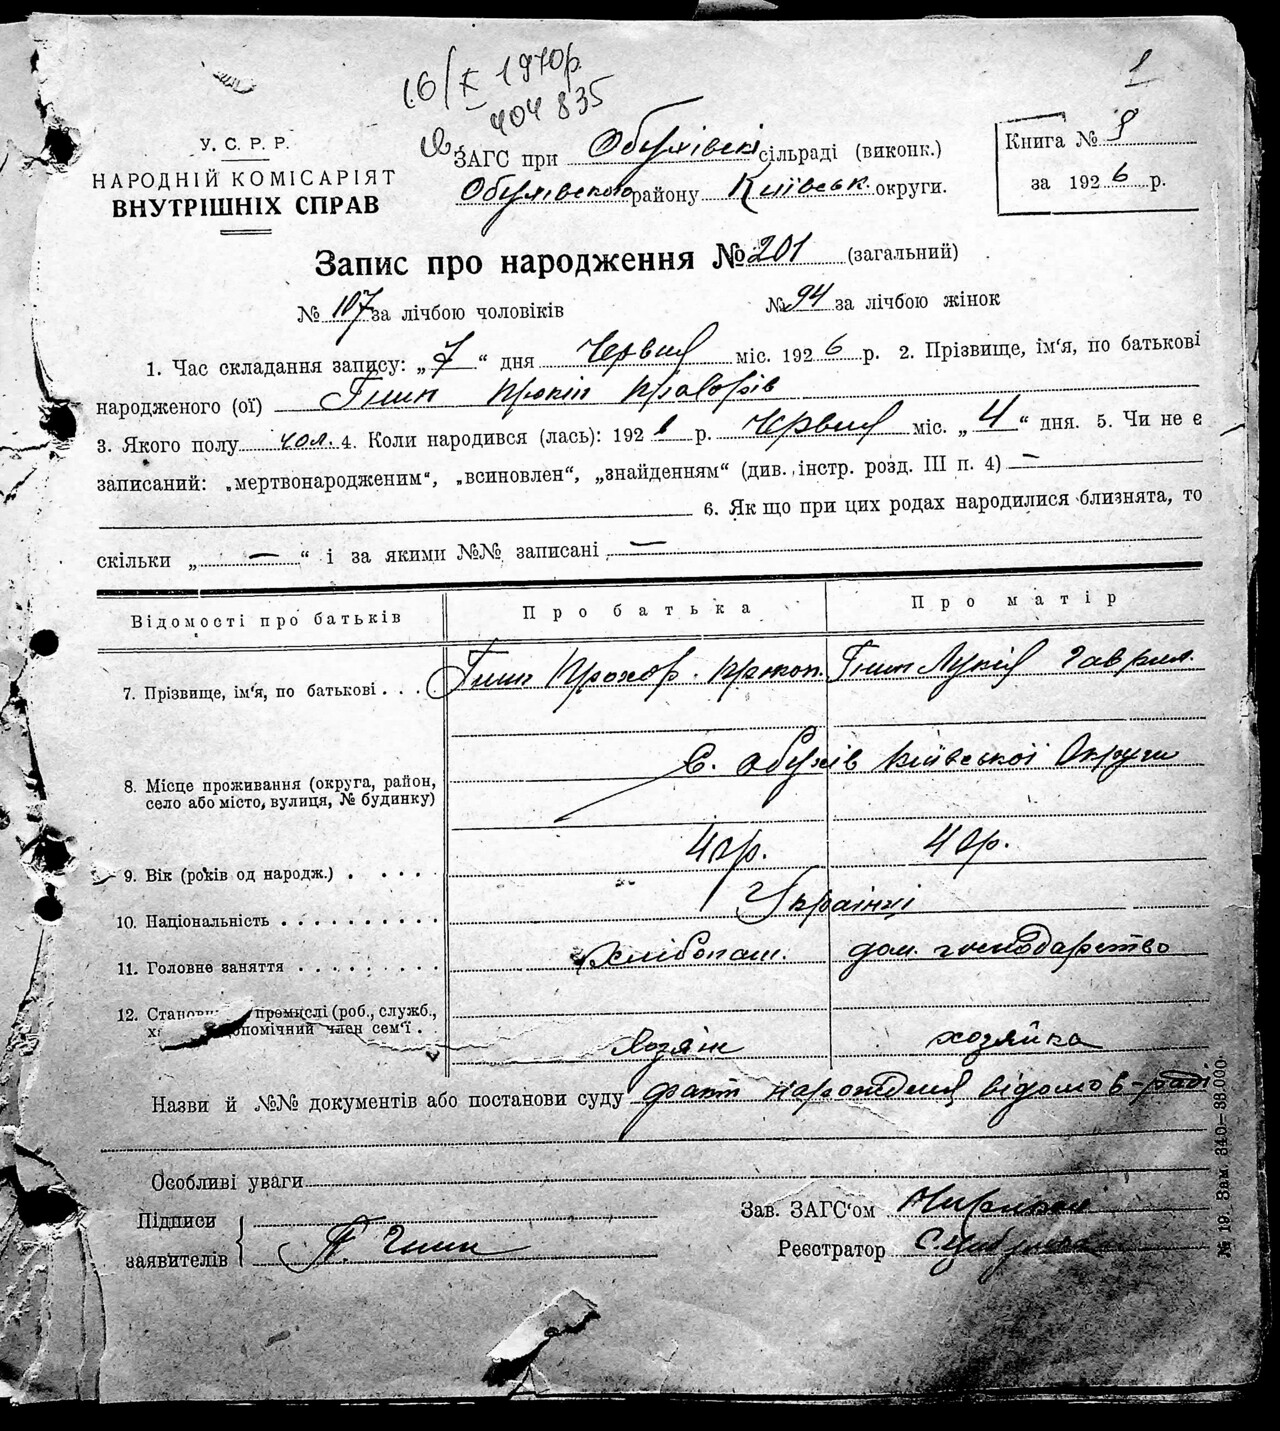 1
16/X 1970р.
404835
У. С. Р. Р.
НАРОДНІЙ КОМІСАРІЯТ
ВНУТРІШНІХ СПРАВ
ЗАГС при Обухівскі сільраді (виконк.)
Обухівського району Київськ. округи.
Книга №
за 1926 р.
Запис про народження № 201 (загальний)
№ 107 за лічбою чоловіків № 94 за лічбою жінок
1. Час складання запису: „7“ дня Червня міс. 1926 р. 2. Прізвище, ім'я, по батькові
народженого (ої)
3. Якого полу чол. 4. Коли народився (лась): 192 р. Червня міс. „4“ дня. 5. Чи не є
записаний: „мертвонародженим“, „всиновлен“, „знайденням“ (див. інстр. розд. III п. 4) —
6. Як що при цих родах народилися близнята, то
скільки „—“ і за якими №№ записані —
Відомості про батьків Про батька Про матір
7. Прізвище, ім'я, по батькові . . . Прохор. Прокоп. Лукія Гаврил.
8. Місце проживання (округа, район,
село або місто, вулиця, № будинку) С. Обухів Київської Округи
9. Вік (років од народж.) . . . . . 40р. 40р.
10. Національність . . . . . . . . . Українці
11. Головне заняття . . . . . . . . Хлібопаш. дом. господарство
12. промислі (роб., служб.,
член сем'ї . Хозяін хозяйка
Назви й №№ документів або постанови суду факт народження відомо в-раді
Особливі уваги
Підписи
заявителів П.
Зав. ЗАГС'ом
Реєстратор
№ 19. Зам. 340—38.000.